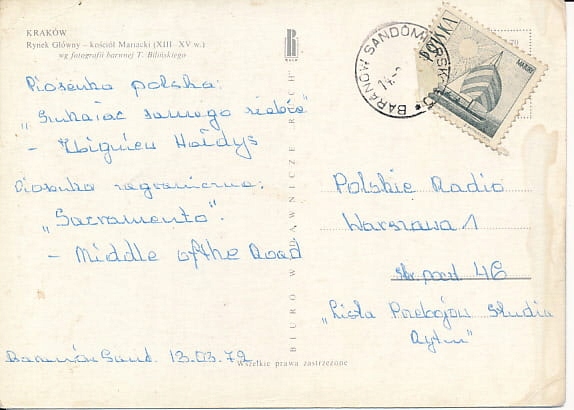 KRAKÓW
Rynek Główny — kościół Mariacki (XIII–XV w.)
wg fotografii barwnej T. Bilińskiego
Piosenka polska:
„Szukając samego siebie”
- Zbigniew Hołdys
Piosenka zagraniczna:
„Sacramento”.
- Middle of the Road
Baranów Sand. 13.03.72
BIURO WYDAWNICZE RUCH
Wszelkie prawa zastrzeżone
BARANÓW SANDOMIERSKI
POLSKA
Polskie Radio
Warszawa 1
skr. poczt 46
„Lista Przebojów Studia
Rytm”